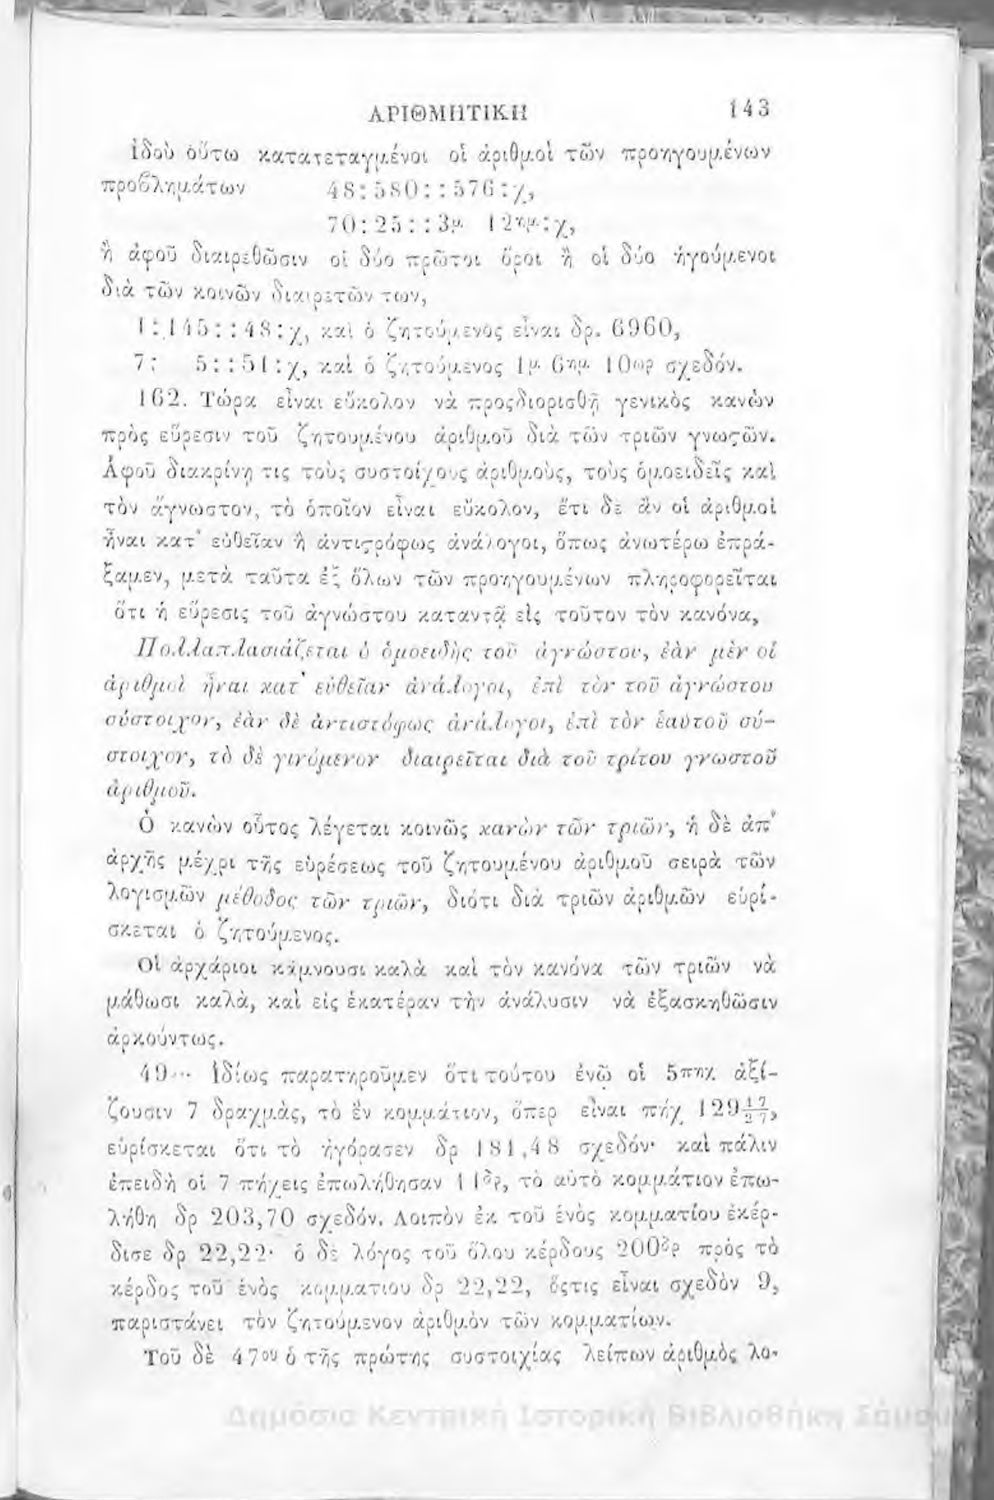 ΑΡΙΘΜΗΤΙΚΗ 143
ἰδοὺ οὕτω κατατεταγμένοι οἱ ἀριθμοὶ τῶν προηγουμένων
προβλημάτων 48 : 580 : : 576 : χ,
70 : 25 : : 3μ. 12ημ. : χ,
ἢ ἀφοῦ διαιρεθῶσιν οἱ δύο πρῶτοι ὅροι ἢ οἱ δύο ἡγούμενοι
διὰ τῶν κοινῶν διαιρετῶν των,
1 : 145 : : 48 : χ, καὶ ὁ ζητούμενος εἶναι δρ. 6960,
7 : 5 : : 51 : χ, καὶ ὁ ζητούμενος 1μ. 6ημ. 10ωρ σχεδόν.
162. Τώρα εἶναι εὔκολον νὰ προςδιορισθῇ γενικὸς κανὼν
πρὸς εὕρεσιν τοῦ ζητουμένου ἀριθμοῦ διὰ τῶν τριῶν γνωςῶν.
Ἀφοῦ διακρίνῃ τις τοὺς συστοίχους ἀριθμοὺς, τοὺς ὁμοειδεῖς καὶ
τὸν ἄγνωστον, τὸ ὁποῖον εἶναι εὔκολον, ἔτι δὲ ἂν οἱ ἀριθμοὶ
ἦναι κατ᾽ εὐθεῖαν ἢ ἀντιςρόφως ἀνάλογοι, ὅπως ἀνωτέρω ἐπρά-
ξαμεν, μετὰ ταῦτα ἐξ ὅλων τῶν προηγουμένων πληροφορεῖται
ὅτι ἡ εὕρεσις τοῦ ἀγνώστου καταντᾷ εἰς τοῦτον τὸν κανόνα,
Πολλαπλασιάζεται ὁ ὁμοειδὴς τοῦ ἀγνώστου, ἐὰν μὲν οἱ
ἀριθμοὶ ἦναι κατ᾽ εὐθεῖαν ἀνάλογοι, ἐπὶ τὸν τοῦ ἀγνώστου
σύστοιχον, ἐὰν δὲ ἀντιστόφως ἀνάλογοι, ἐπὶ τὸν ἑαυτοῦ σύ-
στοιχον, τὸ δὲ γινόμενον διαιρεῖται διὰ τοῦ τρίτου γνωστοῦ
ἀριθμοῦ.
Ὁ κανὼν οὗτος λέγεται κοινῶς κανὼν τῶν τριῶν, ἡ δὲ ἀπ᾽
ἀρχῆς μέχρι τῆς εὑρέσεως τοῦ ζητουμένου ἀριθμοῦ σειρὰ τῶν
λογισμῶν μέθοδος τῶν τριῶν, διότι διὰ τριῶν ἀριθμῶν εὑρί-
σκεται ὁ ζητούμενος.
Οἱ ἀρχάριοι κάμνουσι καλὰ καὶ τὸν κανόνα τῶν τριῶν νὰ
μάθωσι καλὰ, καὶ εἰς ἑκατέραν τὴν ἀνάλυσιν νὰ ἐξασκηθῶσιν
ἀρκούντως.
49 Ἰδίως παρατηροῦμεν ὅτι τούτου ἐνῷ οἱ 5πηχ. ἀξί-
ζουσιν 7 δραχμὰς, τὸ ἓν κομμάτιον, ὅπερ εἶναι πήχ 129 17/27,
εὑρίσκεται ὅτι τὸ ἠγόρασεν δρ 181,48 σχεδόν· καὶ πάλιν
ἐπειδὴ οἱ 7 πήχεις ἐπωλήθησαν 11δρ, τὸ αὐτὸ κομμάτιον ἐπω-
λήθη δρ 203,70 σχεδόν. Λοιπὸν ἐκ τοῦ ἑνὸς κομματίου ἐκέρ-
δισε δρ 22,22· ὁ δὲ λόγος τοῦ ὅλου κέρδους 200δρ πρὸς τὸ
κέρδος τοῦ ἑνὸς κομματιου δρ 22,22, ὅςτις εἶναι σχεδὸν 9,
παριστάνει τὸν ζητούμενον ἀριθμὸν τῶν κομματίων.
Τοῦ δὲ 47ου ὁ τῆς πρώτης συστοιχίας λείπων ἀριθμὸς λο-
Δημόσια Κεντρική Ιστορική Βιβλιοθήκη Σάμου